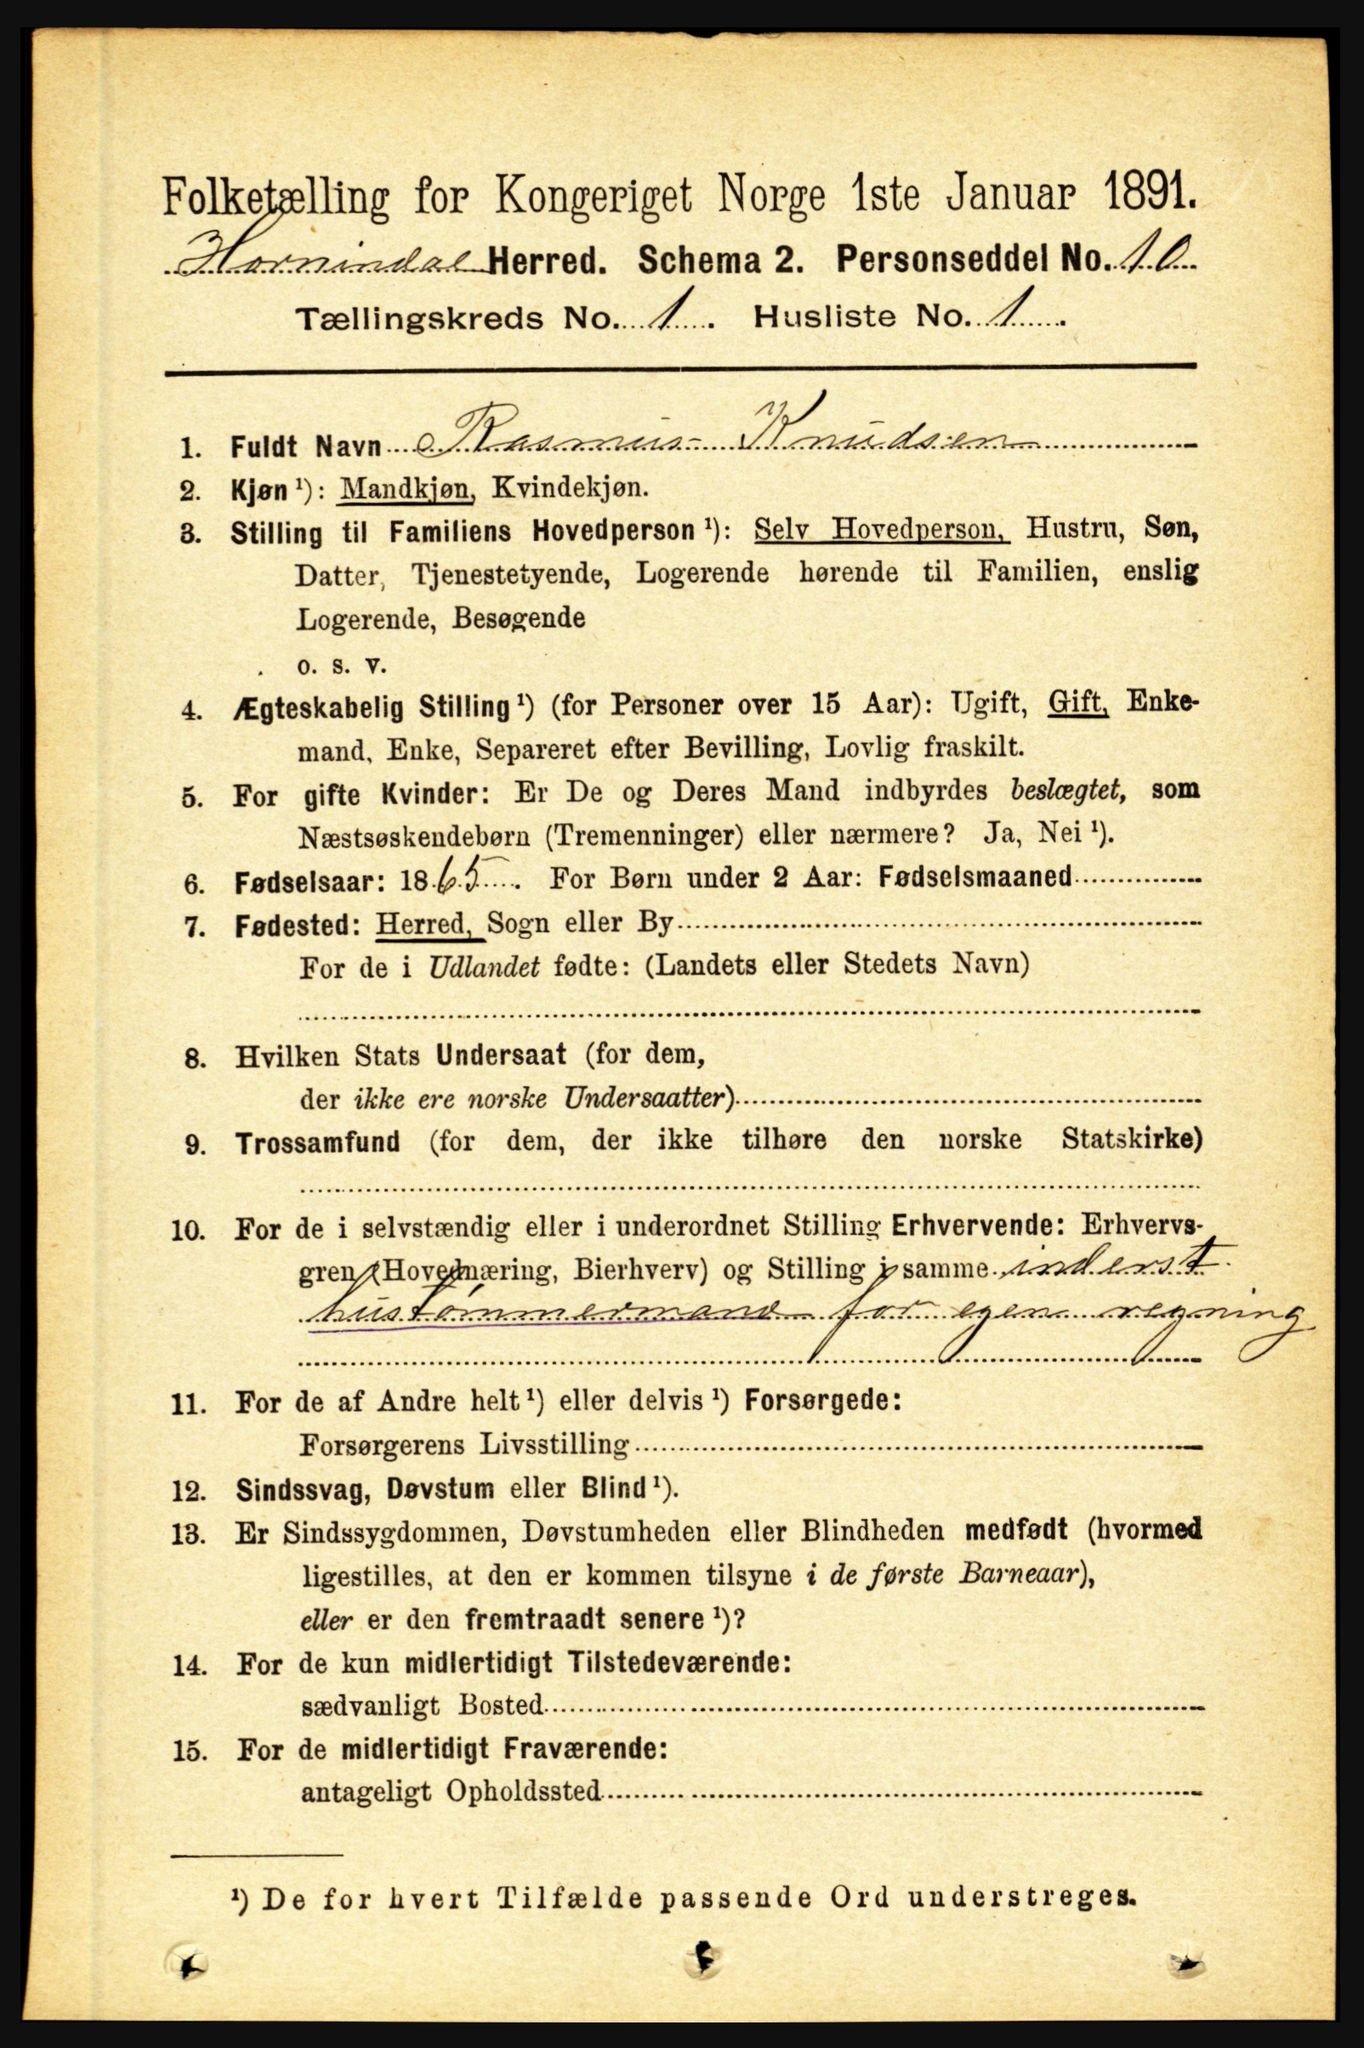 Folketælling for Kongeriget Norge 1ste Januar 1891.
Hornindal Herred. Schema 2. Personseddel No. 10
Tællingskreds No. 1. Husliste No. 1.
1. Fuldt Navn Rasmus Knudsen
2. Kjøn ¹): Mandkjøn, Kvindekjøn.
3. Stilling til Familiens Hovedperson ¹): Selv Hovedperson, Hustru, Søn,
Datter, Tjenestetyende, Logerende hørende til Familien, enslig
Logerende, Besøgende
o. s. v.
4. Ægteskabelig Stilling ¹) (for Personer over 15 Aar): Ugift, Gift, Enke-
mand, Enke, Separeret efter Bevilling, Lovlig fraskilt.
5. For gifte Kvinder: Er De og Deres Mand indbyrdes beslægtet, som
Næstsøskendebørn (Tremenninger) eller nærmere? Ja, Nei ¹).
6. Fødselsaar: 1865. For Børn under 2 Aar: Fødselsmaaned
7. Fødested: Herred, Sogn eller By
For de i Udlandet fødte: (Landets eller Stedets Navn)
8. Hvilken Stats Undersaat (for dem,
der ikke ere norske Undersaatter)
9. Trossamfund (for dem, der ikke tilhøre den norske Statskirke)
10. For de i selvstændig eller i underordnet Stilling Erhvervende: Erhvervs-
gren (Hovednæring, Bierhverv) og Stilling i samme inderst
hustømmermand for egen regning
11. For de af Andre helt ¹) eller delvis ¹) Forsørgede:
Forsørgerens Livsstilling
12. Sindssvag, Døvstum eller Blind ¹).
13. Er Sindssygdommen, Døvstumheden eller Blindheden medfødt (hvormed
ligestilles, at den er kommen tilsyne i de første Barneaar),
eller er den fremtraadt senere ¹)?
14. For de kun midlertidigt Tilstedeværende:
sædvanligt Bosted
15. For de midlertidigt Fraværende:
antageligt Opholdssted
¹) De for hvert Tilfælde passende Ord understreges.